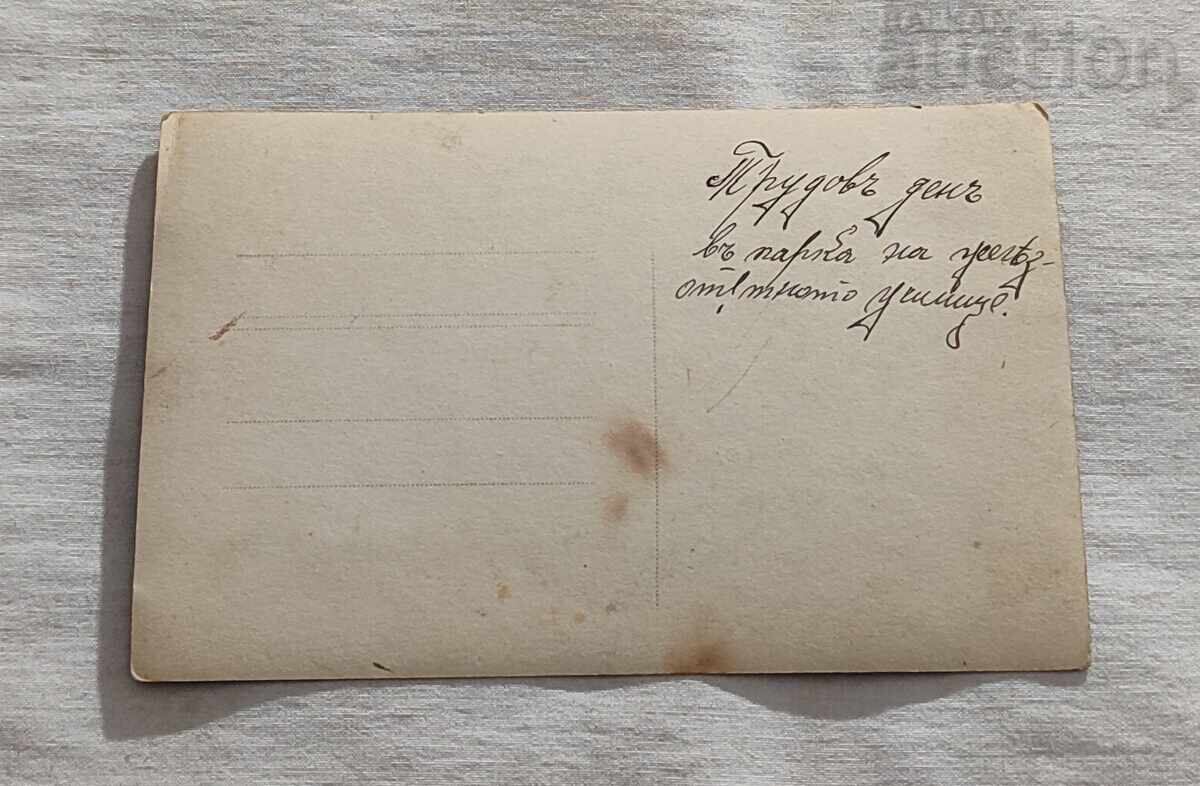 BALKAN
auction
Трудовъ день
въ парка на желѣз-
отпѫтното училище.